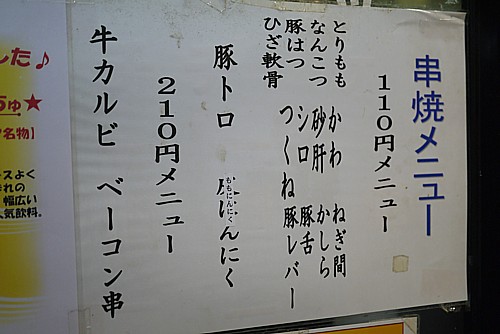 串焼メニュー
110円メニュー
とりもも かわ ねぎ間
なんこつ 砂肝 かしら
豚はつ シロ 豚舌
ひざ軟骨 つくね 豚レバー
豚トロ んにく
ももにんにく
210円メニュー
牛カルビ ベーコン串
した♪
ゅ★
名物】
スよく
れの
幅広い
人気飲料。